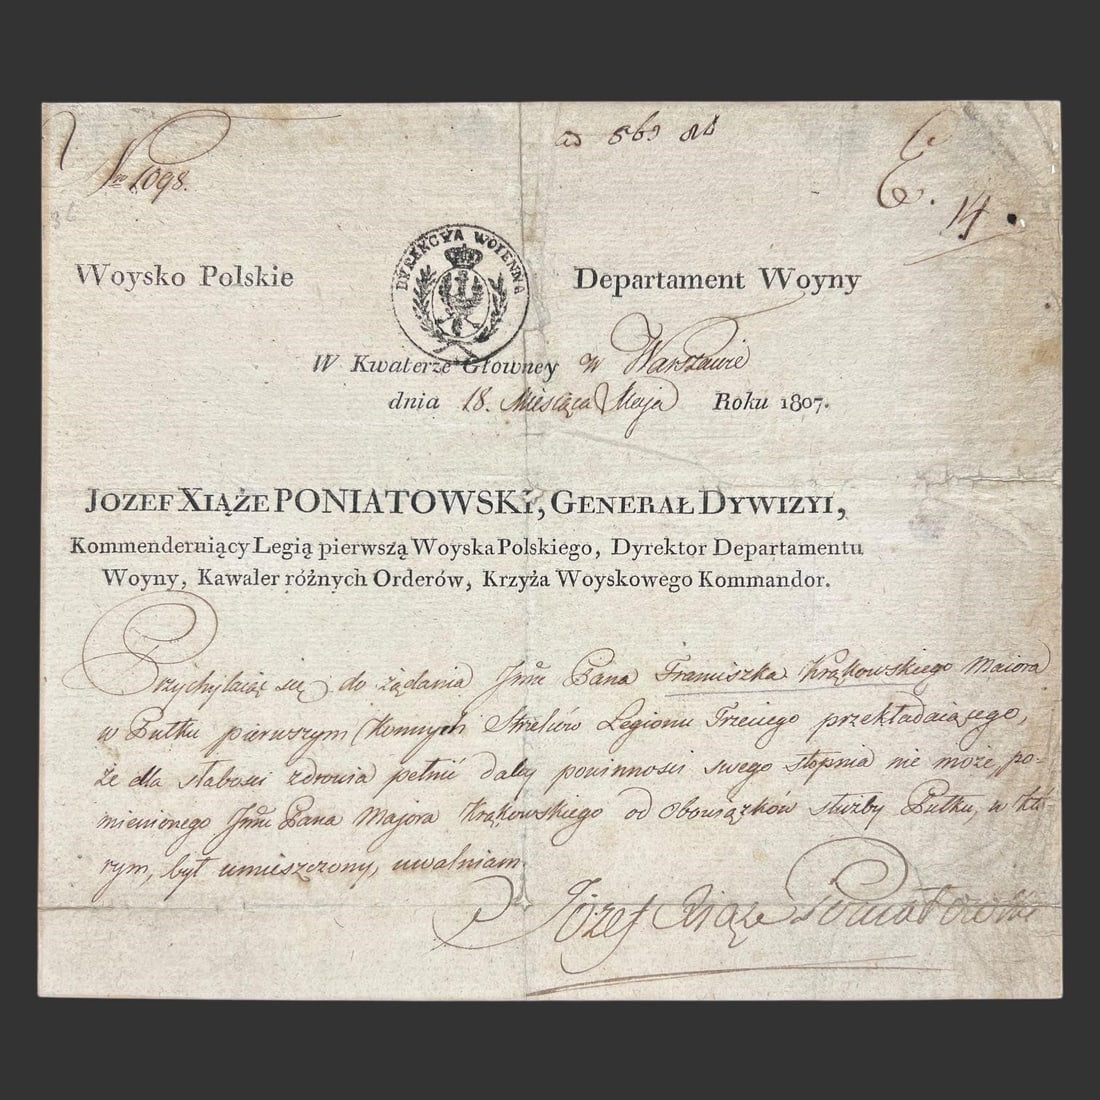 ad 569 84
No 1098.
E. 14.
DYREKCYA WOIENNA
Woysko Polskie Departament Woyny
W Kwaterze Głowney w Warszawie
dnia 18. Miesiąca Maja Roku 1807.
JOZEF XIĄŻE PONIATOWSKI, GENERAŁ DYWIZYI,
Kommenderuiący Legią pierwszą Woyska Polskiego, Dyrektor Departamentu
Woyny, Kawaler różnych Orderów, Krzyża Woyskowego Kommandor.
Przychylaiąc się do żądania Jmć Pana Franciszka Krąkowskiego Maiora
w Pułku pierwszym Konnych Strzelców Legionu Trzeciego przekładaiącego,
że dla słabości zdrowia pełnić daley powinności swego stopnia nie może, po-
mienionego Jmć Pana Majora Krąkowskiego od obowiązków służby Pułku, w któ-
rym, był umieszczony, uwalniam.
Józef Xiąże Poniatowski